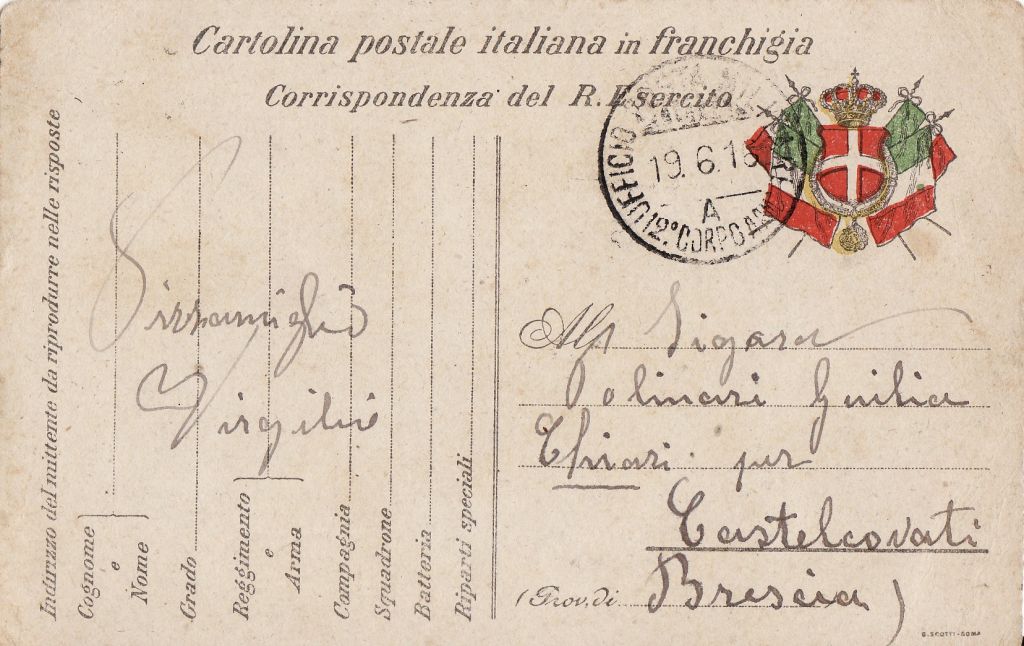 Cartolina postale italiana in franchigia
Corrispondenza del R. Esercito
UFFICIO POSTA MILITARE
19.6.16
A
12° CORPO ARM
Indirizzo del mittente da riprodurre nelle risposte
Cognome
e
Nome
Grado
Reggimento
e
Arma
Compagnia
Squadrone
Batteria
Riparti speciali
Virgilio
All
Polinari Guilia
Chiari per
Castelcovati
(Prov. di Brescia)
G. SCOTTI-ROMA